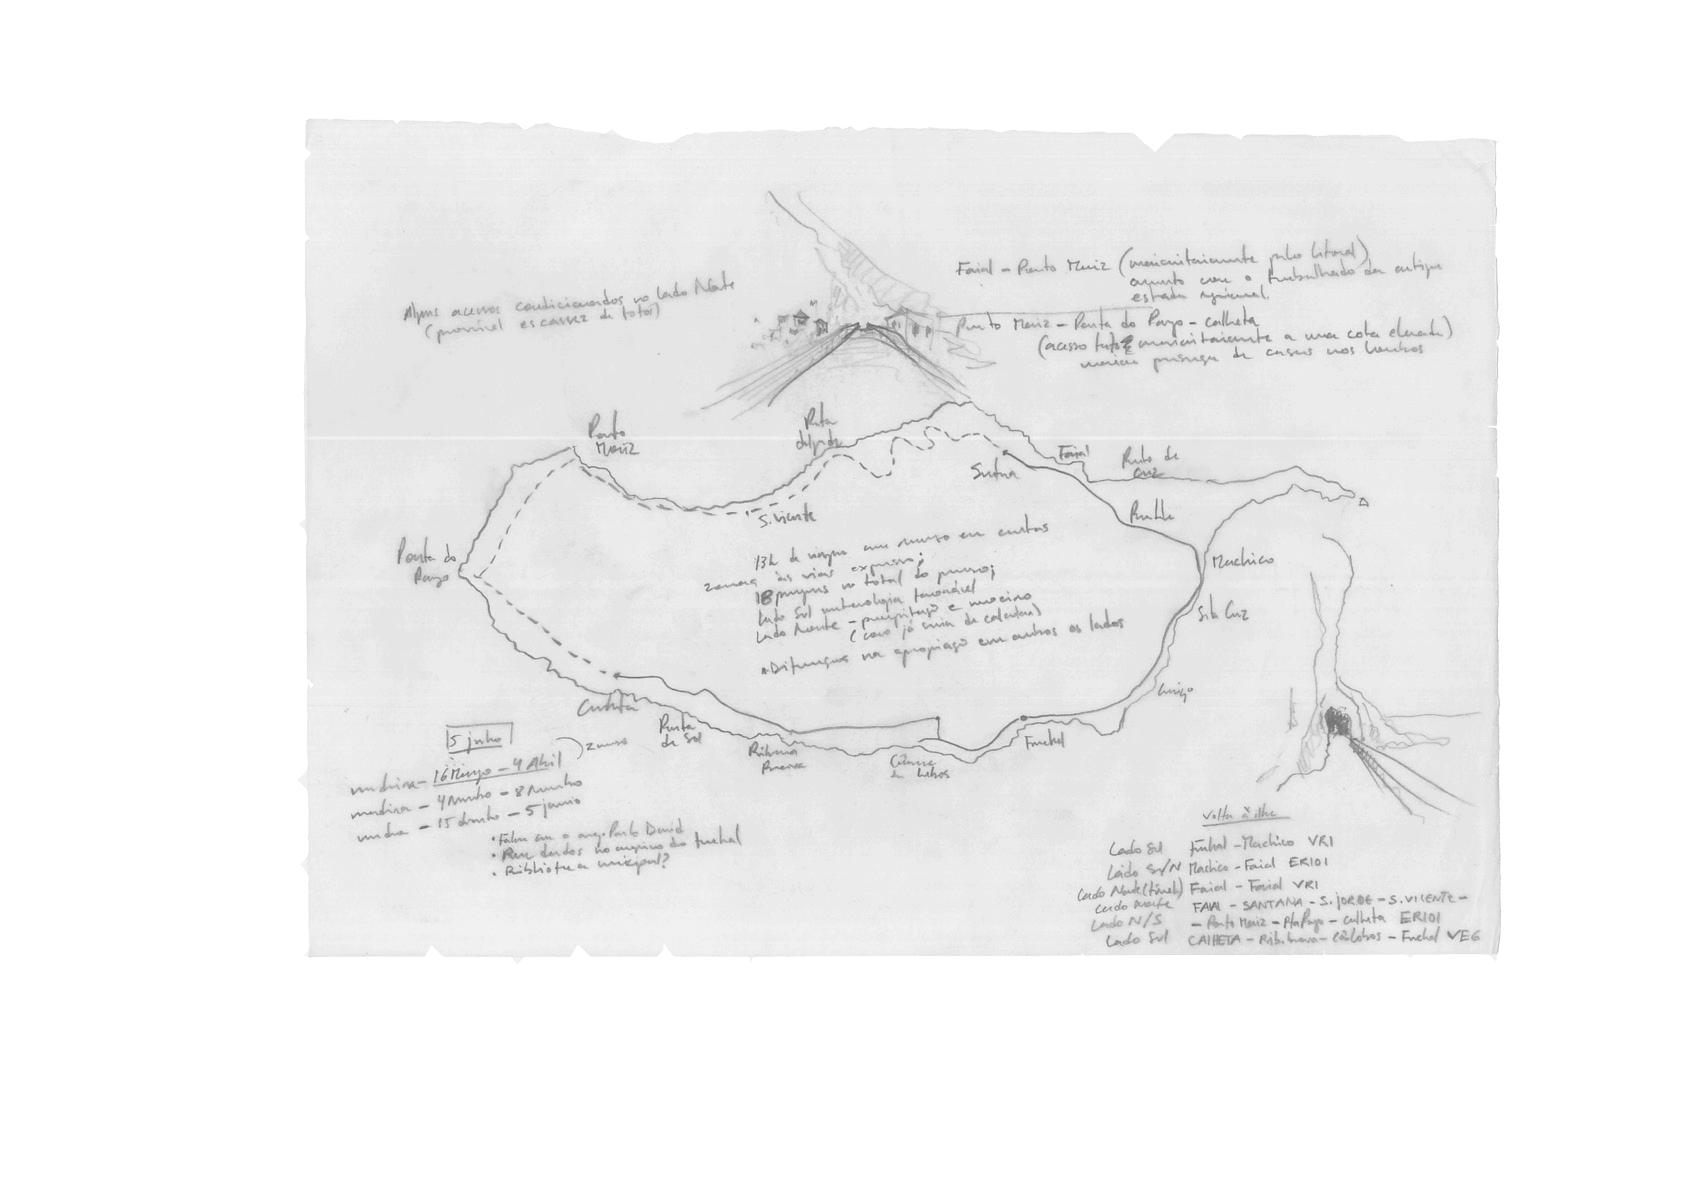 Alguns acessos condicionados no Lado Norte
(provável escassez de fotos)
Faial – Porto Moniz (maioritariamente pelo litoral)
o trabalhado da antiga
estrada regional.
Porto Moniz – Ponta do Pargo – Calheta
(acesso maioritariamente a uma cota elevada)
presença de casas nos
Porto
Moniz
Ponta
delgada
Santana
Faial
Porto da
Cruz
S. Vicente
Ponta do
Pargo
Machico
Sta Cruz
Caniço
Funchal
Câmara
de Lobos
Ribeira
Brava
Ponta
de Sol
Calheta
13h de viagem com
às vias expresso;
18 no total do percurso;
Lado Sul meteorologia favorável
Lado Norte – precipitação e nevoeiro
(como já seria de calcular)
Diferenças na apropriação entre ambos os lados
15 junho
madeira – 16 Março – 4 Abril
madeira – 4 Junho – 8 Junho
madeira – 15 – 5
• Falar com o arq. Paulo David
• dados no arquivo do funchal
• Biblioteca municipal?
Volta à ilha
Lado Sul Funchal – Machico VR1
Lado S/N Machico – Faial ER101
Lado Norte (túnel) Faial – Faial VR1
Lado norte FAIAL – SANTANA – S. JORGE – S. VICENTE –
Lado N/S – Porto Moniz – Pta Pargo – Calheta ER101
Lado Sul CALHETA – Rib. brava – Câ Lobos – Funchal VE6